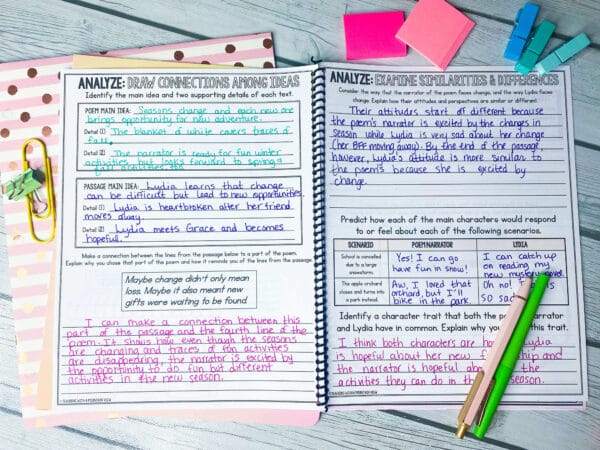 ANALYZE: DRAW CONNECTIONS AMONG IDEAS
Identify the main idea and two supporting details of each text.
POEM MAIN IDEA: Seasons change and each new one
brings opportunity for new adventure.
Detail 1 The blanket of white covers traces of
fall.
Detail 2 The narrator is ready for fun winter
activities but looks forward to spring &
fall activities, too
PASSAGE MAIN IDEA: Lydia learns that change
can be difficult but lead to new opportunities.
Detail 1 Lydia is heartbroken after her friend
moves away.
Detail 2 Lydia meets Grace and becomes
hopeful.
Make a connection between the lines from the passage below to a part of the poem.
Explain why you chose that part of the poem and how it reminds you of the lines from the passage.
Maybe change didn't only mean
loss. Maybe it also meant new
gifts were waiting to be found
I can make a connection between this
part of the passage and the fourth line of the
poem. It shows how even though the seasons
are changing and traces of fun activities
are disappearing, the narrator is excited by
the opportunity to do fun but different
activities in the new season.
ANALYZE: EXAMINE SIMILARITIES & DIFFERENCES
Consider the way that the narrator of the poem faces change, and the way Lydia faces
change. Explain how their attitudes and perspectives are similar or different.
Their attitudes start of different because
the poem's narrator is excited by the change in
season while Lydia is very sad about her change
(her BFF moving away). By the end of the passage,
however, Lydia's attitude is more similar to
the poem's because she is excited by
change.
Predict how each of the main characters would respond
to or feel about each of the following scenarios.
SCENARIO POEM NARRATOR LYDIA
School is cancelled
due to a large
snowstorm.
Yes! I can go
have fun in snow!
I can catch up
on reading my
new mystery novel.
The apple orchard
closes and turns into
a park instead.
Aw, I loved that
orchard, but I'll
bike in the park.
Oh no! is
so sad
Identify a character trait that both the poem narrator
and Lydia have in common. Explain why you this trait.
I think both characters are Lydia
is hopeful about her new and
the narrator is hopeful the
activities they can do in the season.